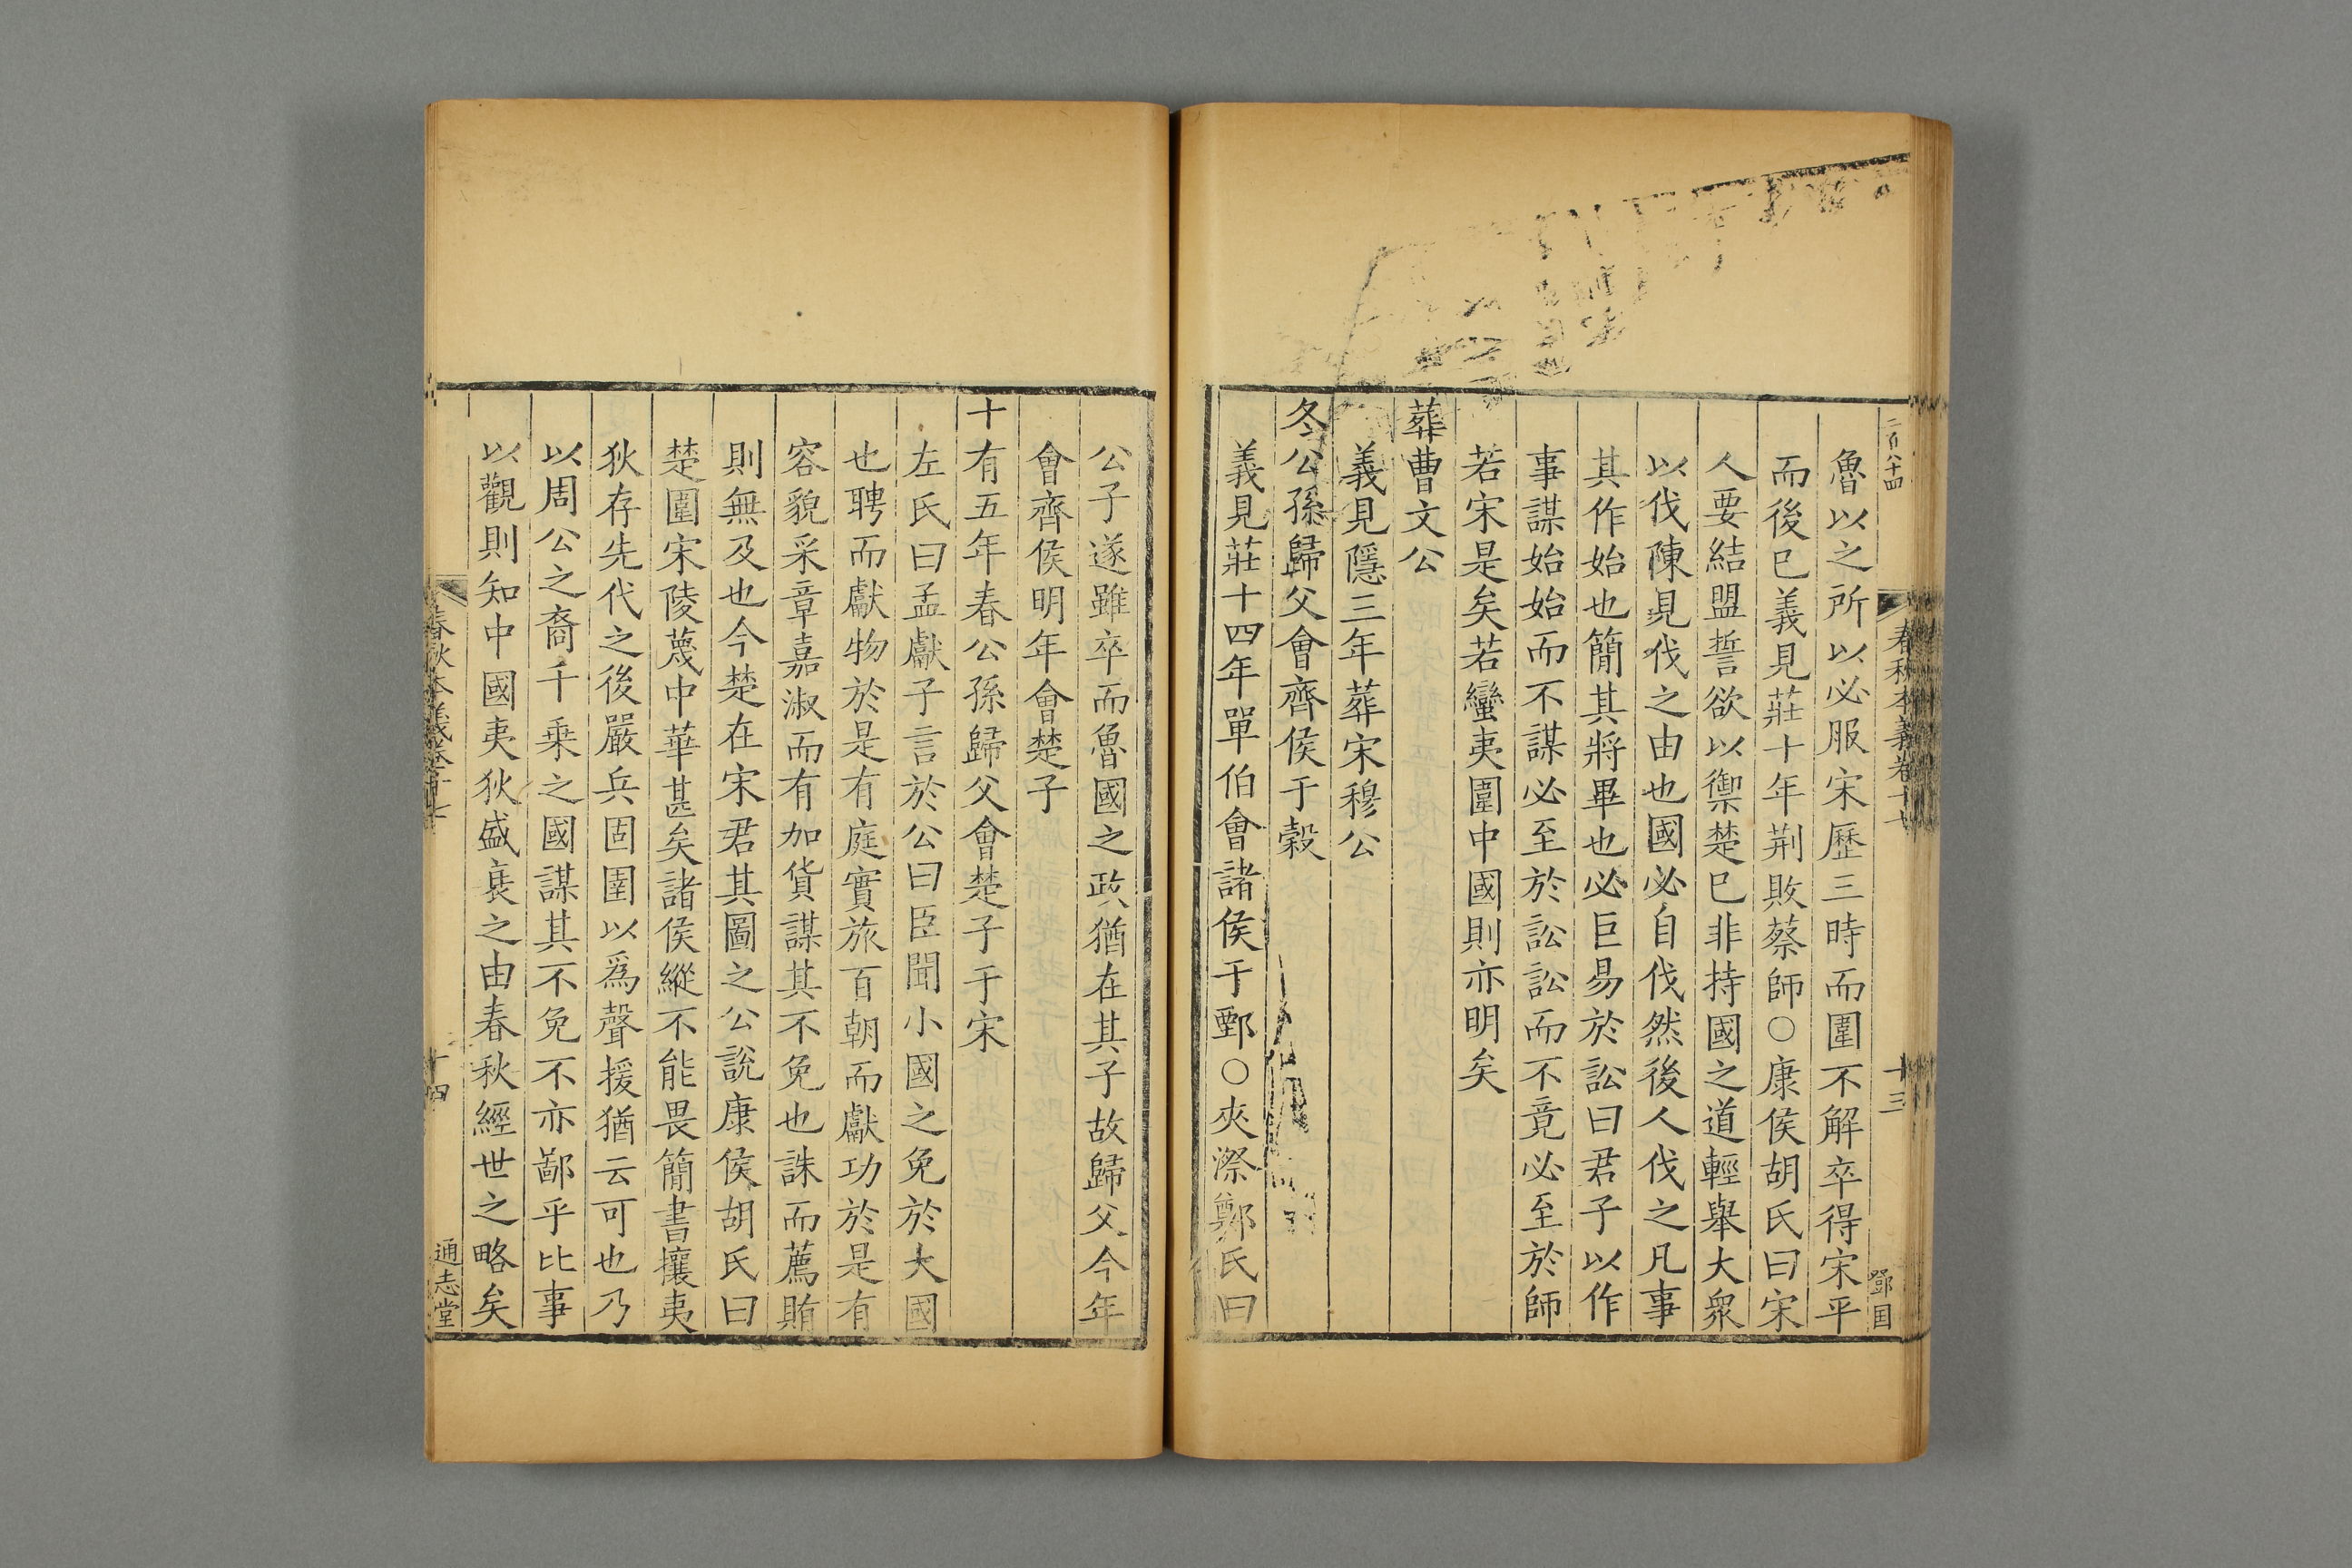 二百八十四
春秋本義卷十七
十三
鄧国
魯以之所以必服宋歷三時而圍不解卒得宋平
而後已義見莊十年荆敗蔡師○康侯胡氏曰宋
人要結盟誓欲以禦楚已非持國之道輕舉大衆
以伐陳見伐之由也國必自伐然後人伐之凡事
其作始也簡其將畢也必巨易於訟曰君子以作
事謀始始而不謀必至於訟訟而不竟必至於師
若宋是矣若蠻夷圍中國則亦明矣
葬曹文公
義見隱三年葬宋穆公
冬公孫歸父會齊侯于穀
義見莊十四年單伯會諸侯于鄄○夾漈鄭氏曰
公子遂雖卒而魯國之政猶在其子故歸父今年
會齊侯明年會楚子
十有五年春公孫歸父會楚子于宋
左氏曰孟獻子言於公曰臣聞小國之免於大國
也聘而獻物於是有庭實旅百朝而獻功於是有
容貌采章嘉淑而有加貨謀其不免也誅而薦賄
則無及也今楚在宋君其圖之公說康侯胡氏曰
楚圍宋陵蔑中華甚矣諸侯縱不能畏簡書攘夷
狄存先代之後嚴兵固圉以爲聲援猶云可也乃
以周公之裔千乗之國謀其不免不亦鄙乎比事
以觀則知中國夷狄盛衰之由春秋經世之略矣
春秋本義卷十七
十四
通志堂